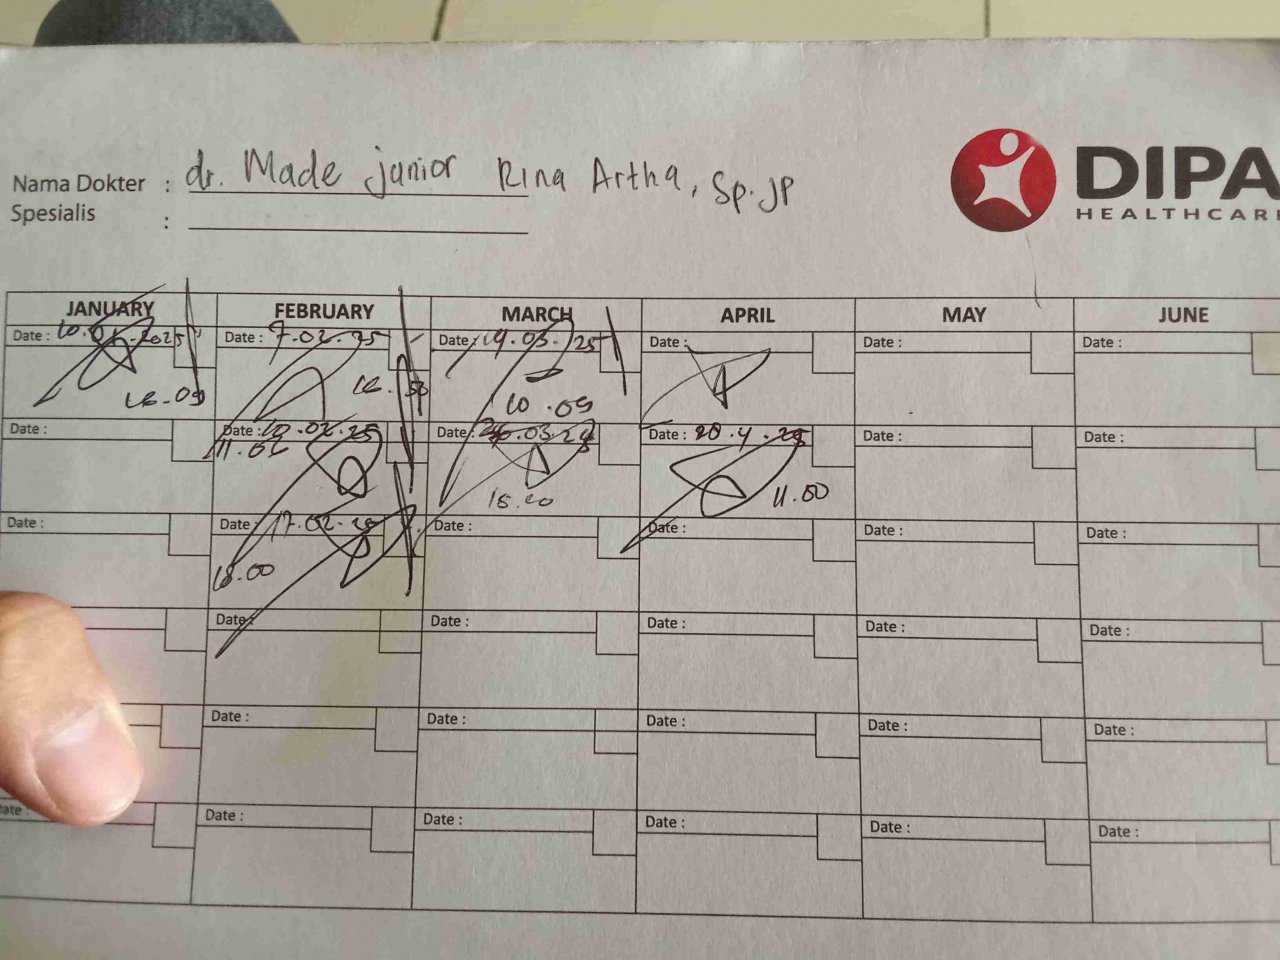 Nama Dokter : dr. Made junior Rina Artha, Sp.JP
Spesialis :
DIPA
HEALTHCAR
JANUARY FEBRUARY MARCH APRIL MAY JUNE
Date : 10.01.2025 Date : 7.02.25 Date : 19.03.25 Date : Date : Date :
10.09
Date : Date : 10.02.25 Date : Date : 20.4.25 Date : Date :
11.02 11.00
Date : Date : 17.02.25 Date : Date : Date : Date :
18.00
Date : Date : Date : Date : Date :
Date : Date : Date : Date : Date :
Date : Date : Date : Date : Date :